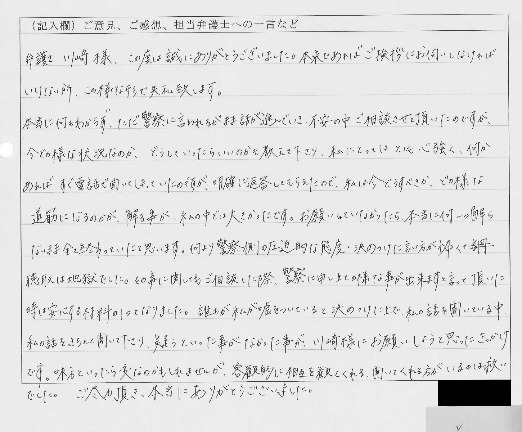 （記入欄）ご意見、ご感想、担当弁護士への一言など
弁護士 川崎様、この度は誠にありがとうございました。本来であればご挨拶にお伺いしなければ
いけない所、この様な形で失礼致します。
本当に何もわからず、ただ警察に言われるがまま話が進んでいき、不安の中ご相談させて頂いたのですが、
今どの様な状況なのか、どうしていったらいいのかを教えて下さり、私にとっては とても心強く、何か
あれば すぐ電話で聞いてしまっていたのですが、明確に返答してもらえたので、私は今どうすべきか、どの様な
道筋になるのかが、解る事が、私の中では大きかったです。お願いしていなかったら、本当に何一つ解ら
ないまま全て終わっていたと思います。何より警察側の圧迫的な態度、決めつけた言い方が怖くて
聴取は地獄でした。その事に関してもご相談した際、警察に申し立ての様な事が出来ますと言って頂いた
時は安心する材料の1つとなりました。誰もが私が嘘をついていると決めつけた上で、私の話を聞いている中、
私の話をきちんと聞いて下さり、疑うといった事がなかった事が、川崎様にお願いしようと思ったきっかけ
です。味方といったら変なのかもしれませんが、客観的に相互を観てくれる、聞いてくれる方がいるのは救い
でした。 ご尽力頂き、本当にありがとうございました。